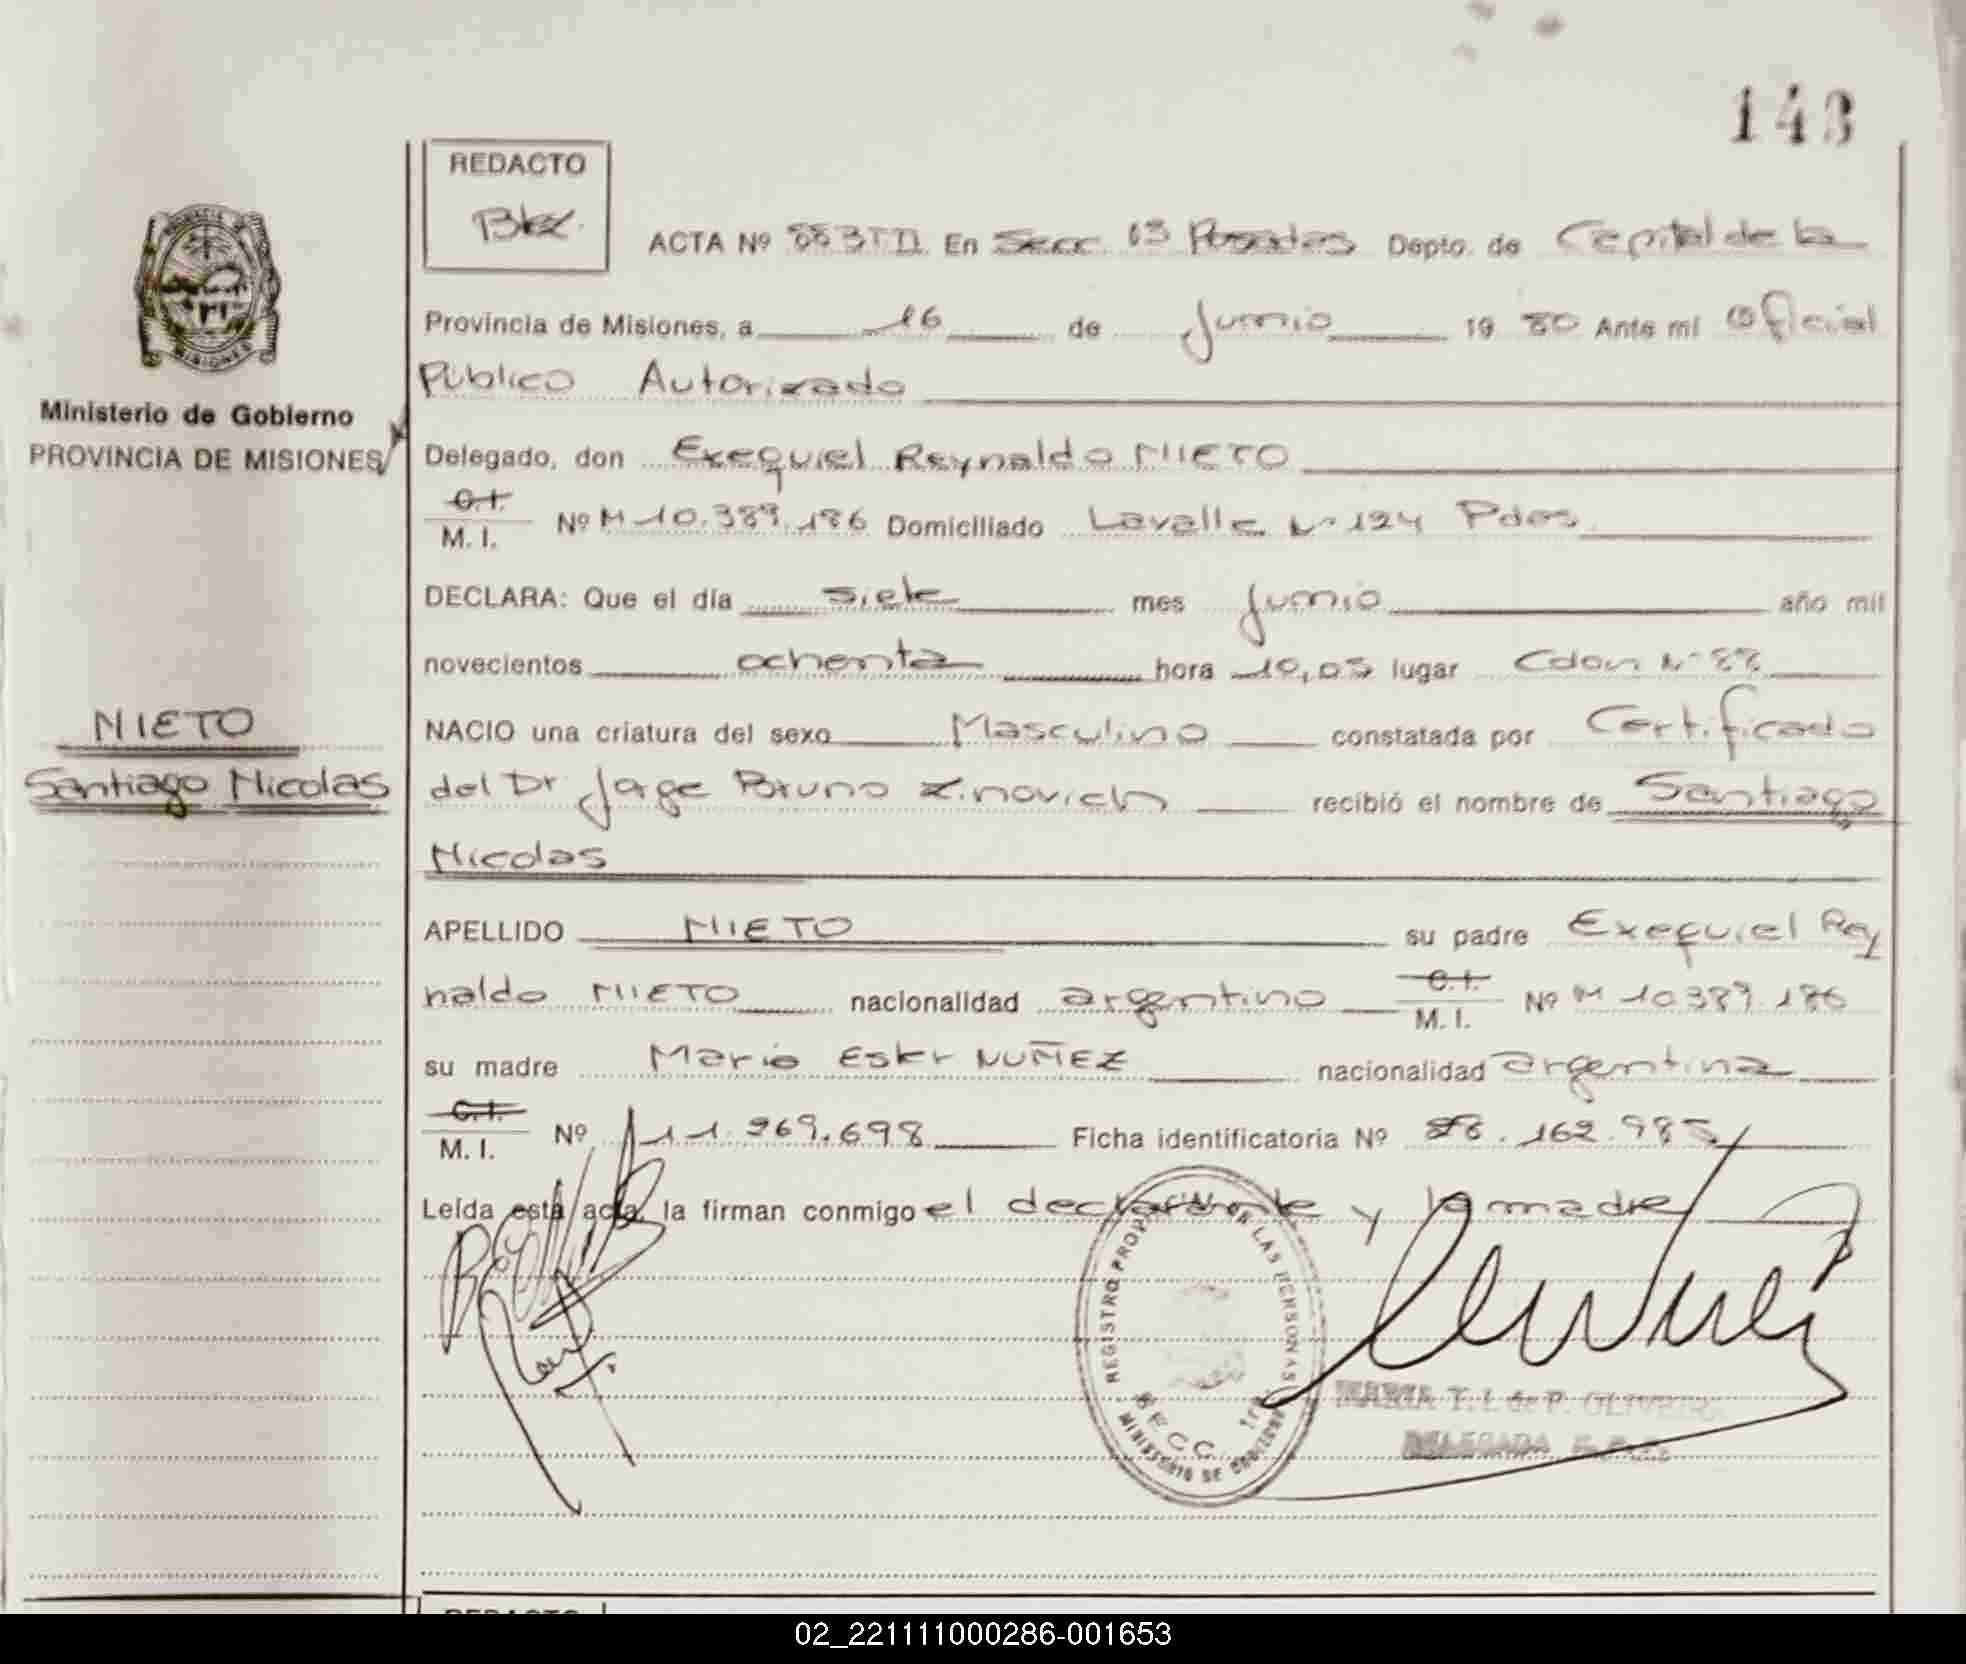 143
REDACTO
ACTA Nº 883 T II En Secc. 03 Posadas Depto. de Capital de la
Provincia de Misiones, a 16 de Junio 19 80 Ante mí Oficial
Público Autorizado
Ministerio de Gobierno
PROVINCIA DE MISIONES
Delegado, don Exequiel Reynaldo NIETO
C.I.
M. I. Nº M 10.389.186 Domiciliado Lavalle Nº 124 Pdas.
DECLARA: Que el día siete mes Junio año mil
novecientos ochenta hora 10,05 lugar Cdón Nº 88
NIETO
NACIO una criatura del sexo Masculino constatada por Certificado
Santiago Nicolas
del Dr Jorge Bruno Zinovich recibió el nombre de Santiago
Nicolas
APELLIDO NIETO su padre Exequiel Rey
naldo NIETO nacionalidad argentino C.I.
M. I. Nº M 10.389.186
su madre Maria Ester NUÑEZ nacionalidad argentina
C.I.
M. I. Nº 11.969.698 Ficha identificatoria Nº 28.162.985
Leída esta acta, la firman conmigo el declarante y la madre
REGISTRO PROV. LAS PERSONAS
MINISTERIO DE GOBIERNO
MARIA T. I. de P. OLIVEIRA
DELEGADA
REDACTO
02_221111000286-001653